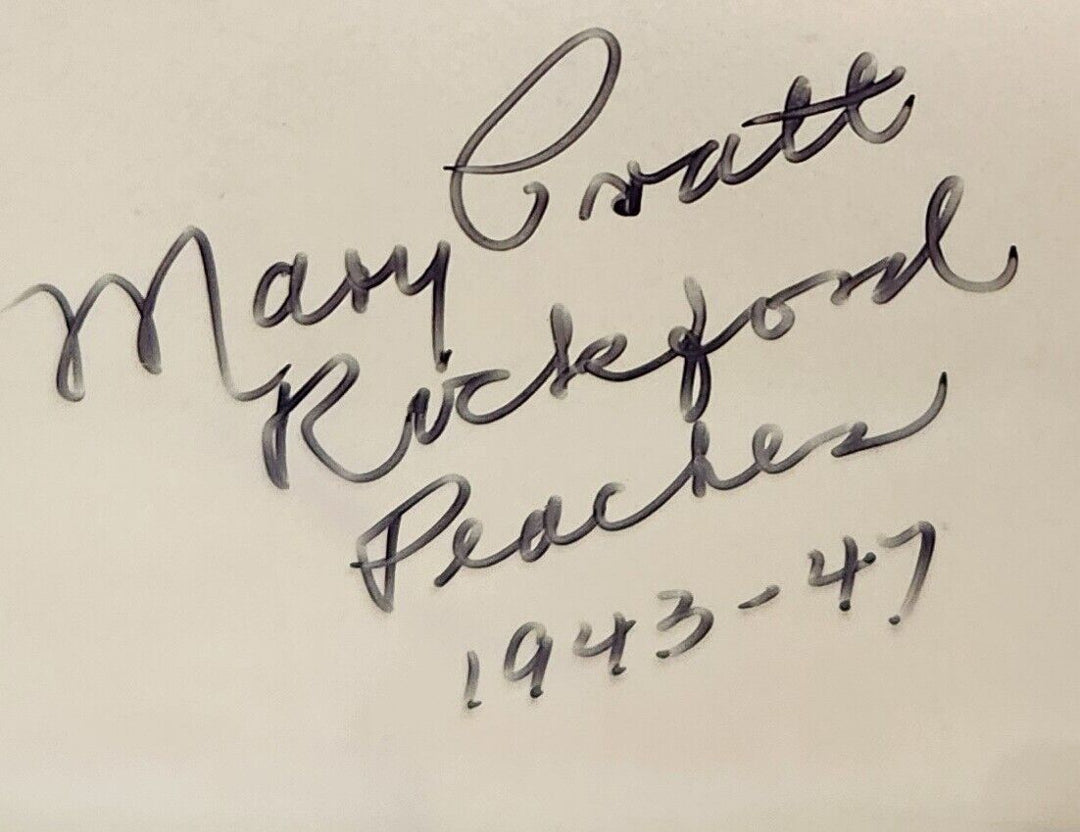 Mary Pratt
Rockford
Peaches
1943-47